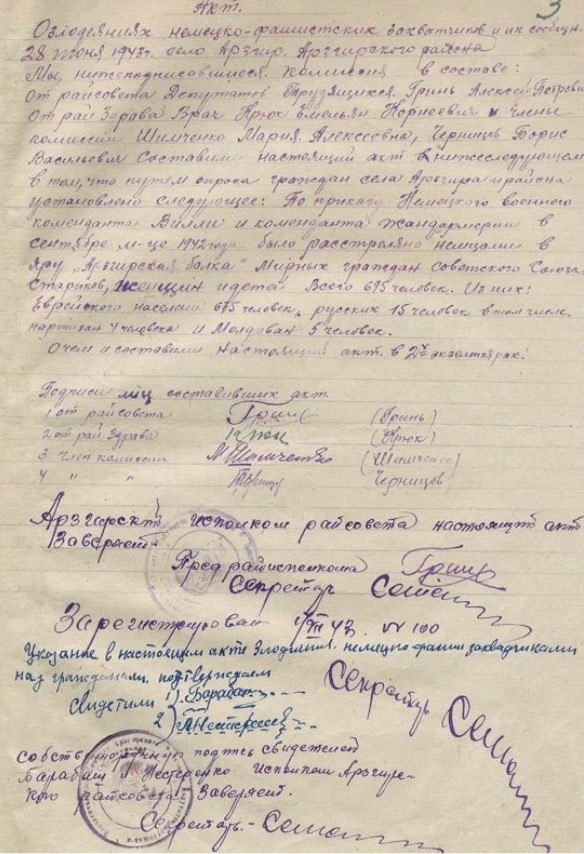 3
Акт.
О злодеяниях немецко-фашистских захватчиков и их сообщн.
28 июня 1943г. село Арзгир. Арзгирского района
Мы, нижеподписавшиеся комиссия в составе:
От райсовета Депутатов Трудящихся. Гринь Алексей Петрович
От рай Здрава Врач Крюк Емельян Корнеевич и Члены
комиссии Шимченко Мария Алексеевна, Черницов Борис
Васильевич Составили настоящий акт в нижеследующем
в том, что путем опроса граждан села Арзгира и района
установлено следующее: По приказу Немецкого военного
коменданта Вилли и коменданта жандармерии в
сентябре м-це 1942 года было расстреляно немцами в
Яру „Арзгирская балка" Мирных граждан Советского Союза
Стариков, женщин и детей Всего 695 человек. Из них:
Еврейского населен 675 человек, русских 15 человек в том числе.
партизан 4 человека и Молдован 5 человек.
О чем и составили настоящий акт. в 2х экземплярах.
Подписи лиц составивших акт.
1 от райсовета Гринь (Гринь)
2 от рай Здрава Крюк (Крюк)
3 член комиссии М Шимченко (Шимченко)
4 " " Черницов
Арзгирский исполком райсовета настоящий акт
Заверяет.
Пред райисполкома Гринь
Секретарь
Зарегистрирован 43. № 100
Указание в настоящем акте Злодеяния. немецко фаши захвадчиками
над гражданами. подтверждаем
Свидетили 1) Барабаш
2) Нестеренко
Секретарь
собственно подпсь свидетелей
Барабаш и Нестеренко Исполком Арзгирс-
кого Райсовета Заверяет.
Секретарь-